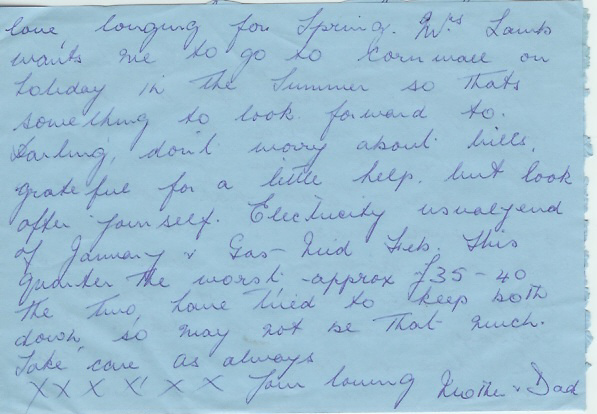 love, longing for Spring. Mrs Lamb
wants me to go to Cornwall on
holiday in the Summer so thats
something to look forward to.
Darling, don't worry about bills,
grateful for a little help. but look
after yourself. Electricity usualy end
of January & Gas - Mid Feb. This
quarter the worst, - approx £35 - 40
the two, have tried to keep both
down, so may not be that much.
Take care as always
X X X X X X Your loving Mother & Dad